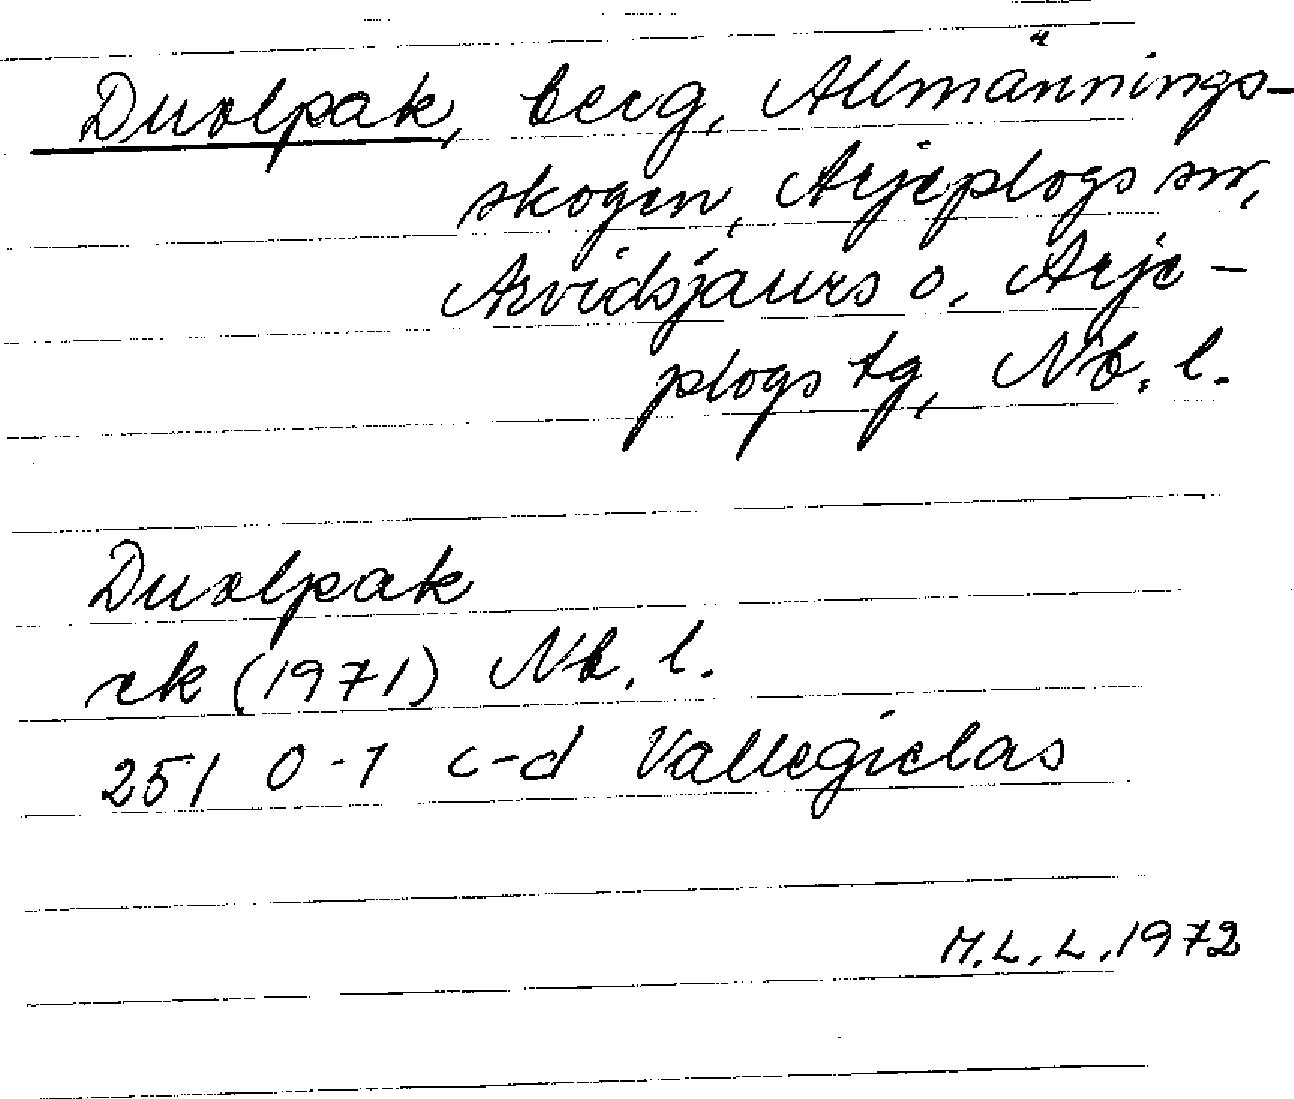 Duolpak, berg, Allmännings-
skogen, Arjeplogs sn,
Arvidsjaurs o. Arje-
plogs tg, Nb. l.
Duolpak
ek (1971) Nb. l.
251 0-1 c-d Vallegielas
M.L.L. 1972